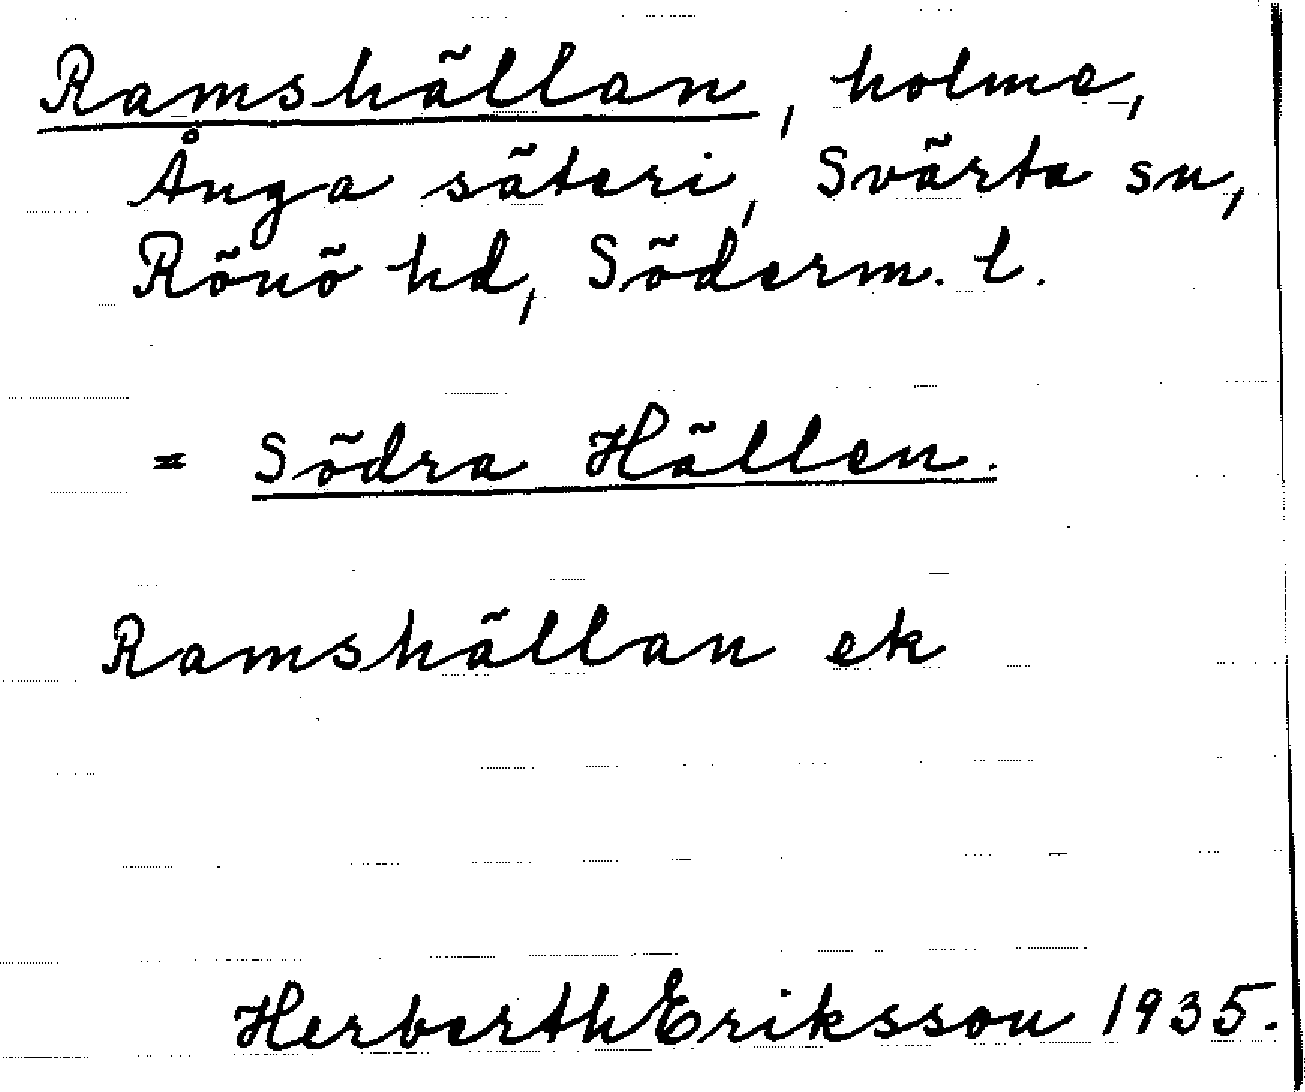 Ramshällan, holme,
Ånga säteri, Svärta sn,
Rönö hd, Söderm. l.
= Södra Hällen.
Ramshällan ek
Herberth Eriksson 1935.